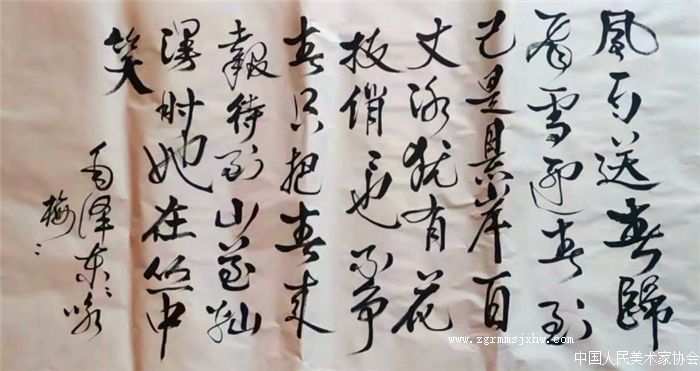 風雨送春歸
飛雪迎春到
已是悬崖百
丈冰犹有花
枝俏々也不争
春只把春来
報待到山花灿
漫时她在丛中
笑
毛泽东咏
梅
www.zgrmmsjxhw.com
中国人民美术家协会